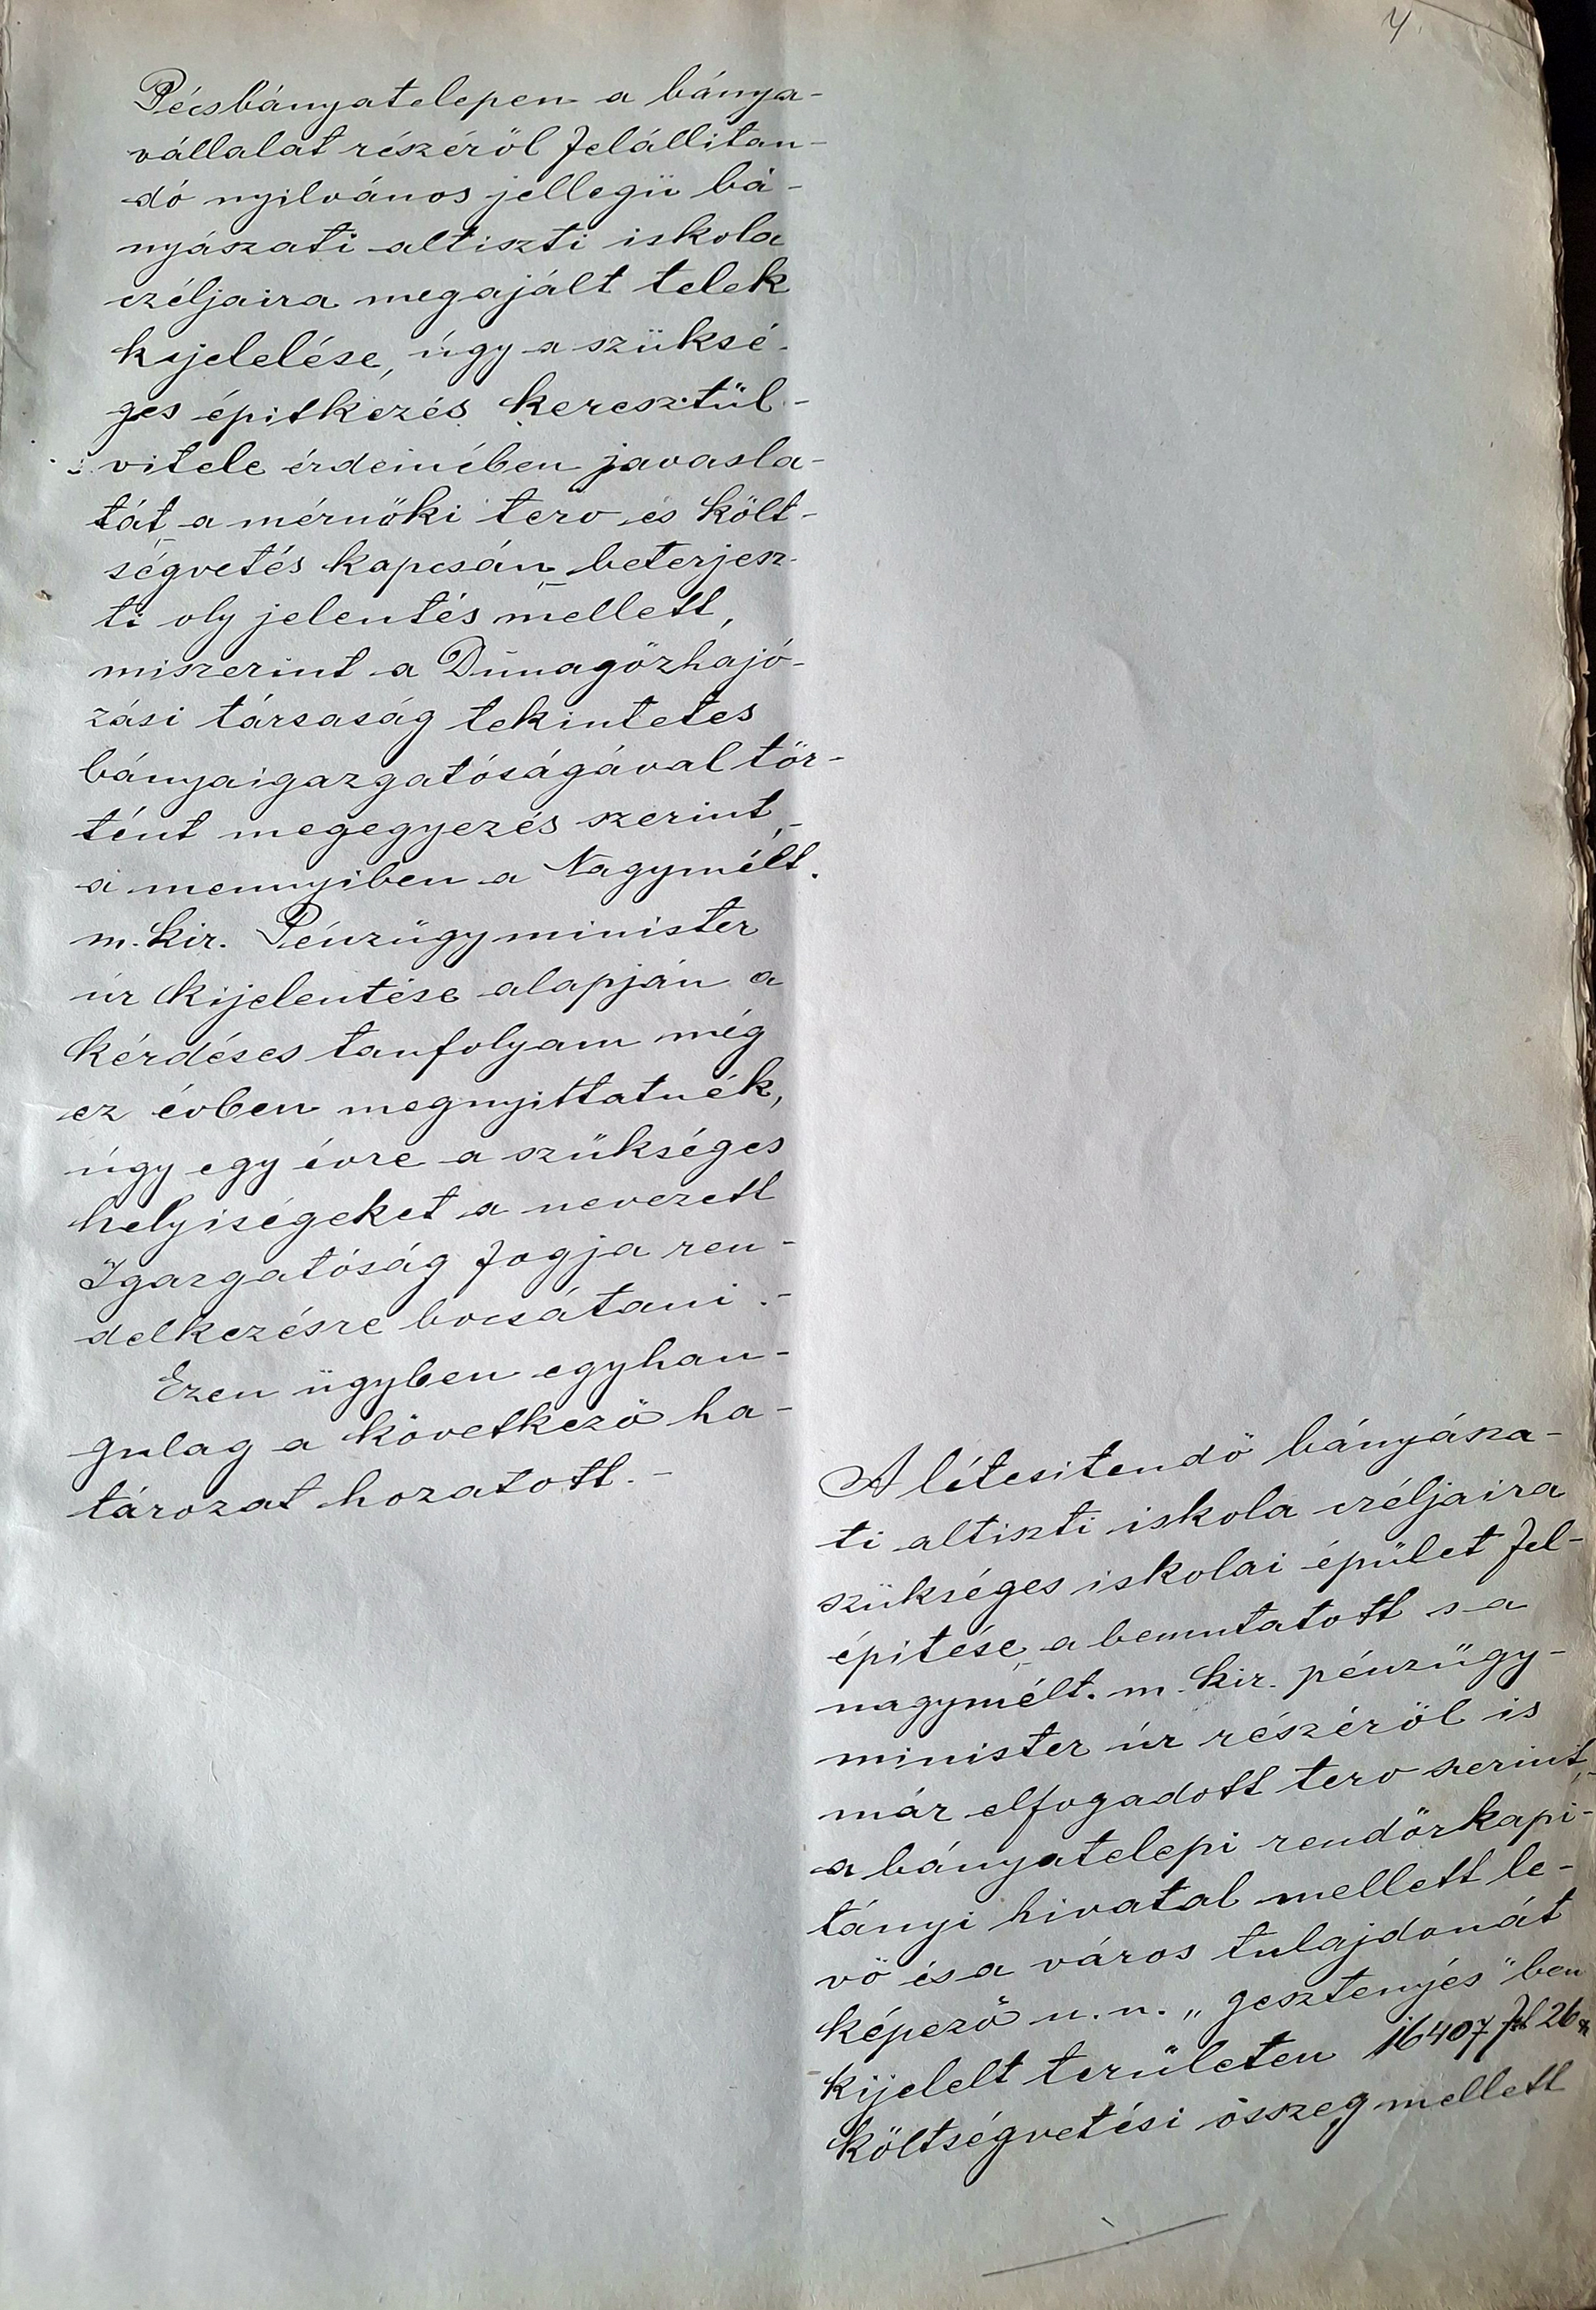 4.
Pécsbányatelepen a bánya-
vállalat részéröl felállitan-
dó nyilvános jellegü bá-
nyászati altiszti iskola
czéljaira megajált telek
kijelelése, úgy a szüksé-
ges épitkezés keresztül-
vitele érdemében javasla-
tát a mérnöki terv és költ-
ségvetés kapcsán beterjesz-
ti oly jelentés mellett,
miszerint a Dunagözhajó-
zási társaság tekintetes
bányaigazgatóságával tör-
tént megegyezés szerint,-
a mennyiben a Nagymélt.
m. kir. Pénzügyminister
úr kijelentése alapján a
kérdéses tanfolyam még
ez évben megnyittatnék,
úgy egy évre a szükséges
helyiségeket a nevezett
Igazgatóság fogja ren-
delkezésre bocsátani.-
Ezen ügyben egyhan-
gulag a következö ha-
tározat hozatott.-
A létesitendö bányásza-
ti altiszti iskola czéljaira
szükséges iskolai épület fel-
épitése, a bemutatott s a
nagymélt. m. kir. pénzügy-
minister úr részéröl is
már elfogadott terv szerint,-
a bányatelepi rendörkapi-
tányi hivatal mellett le-
vö és a város tulajdonát
képezö u. n. „gesztenyés"ben
kijelelt területen 16407 frt 26
költségvetési összeg mellett